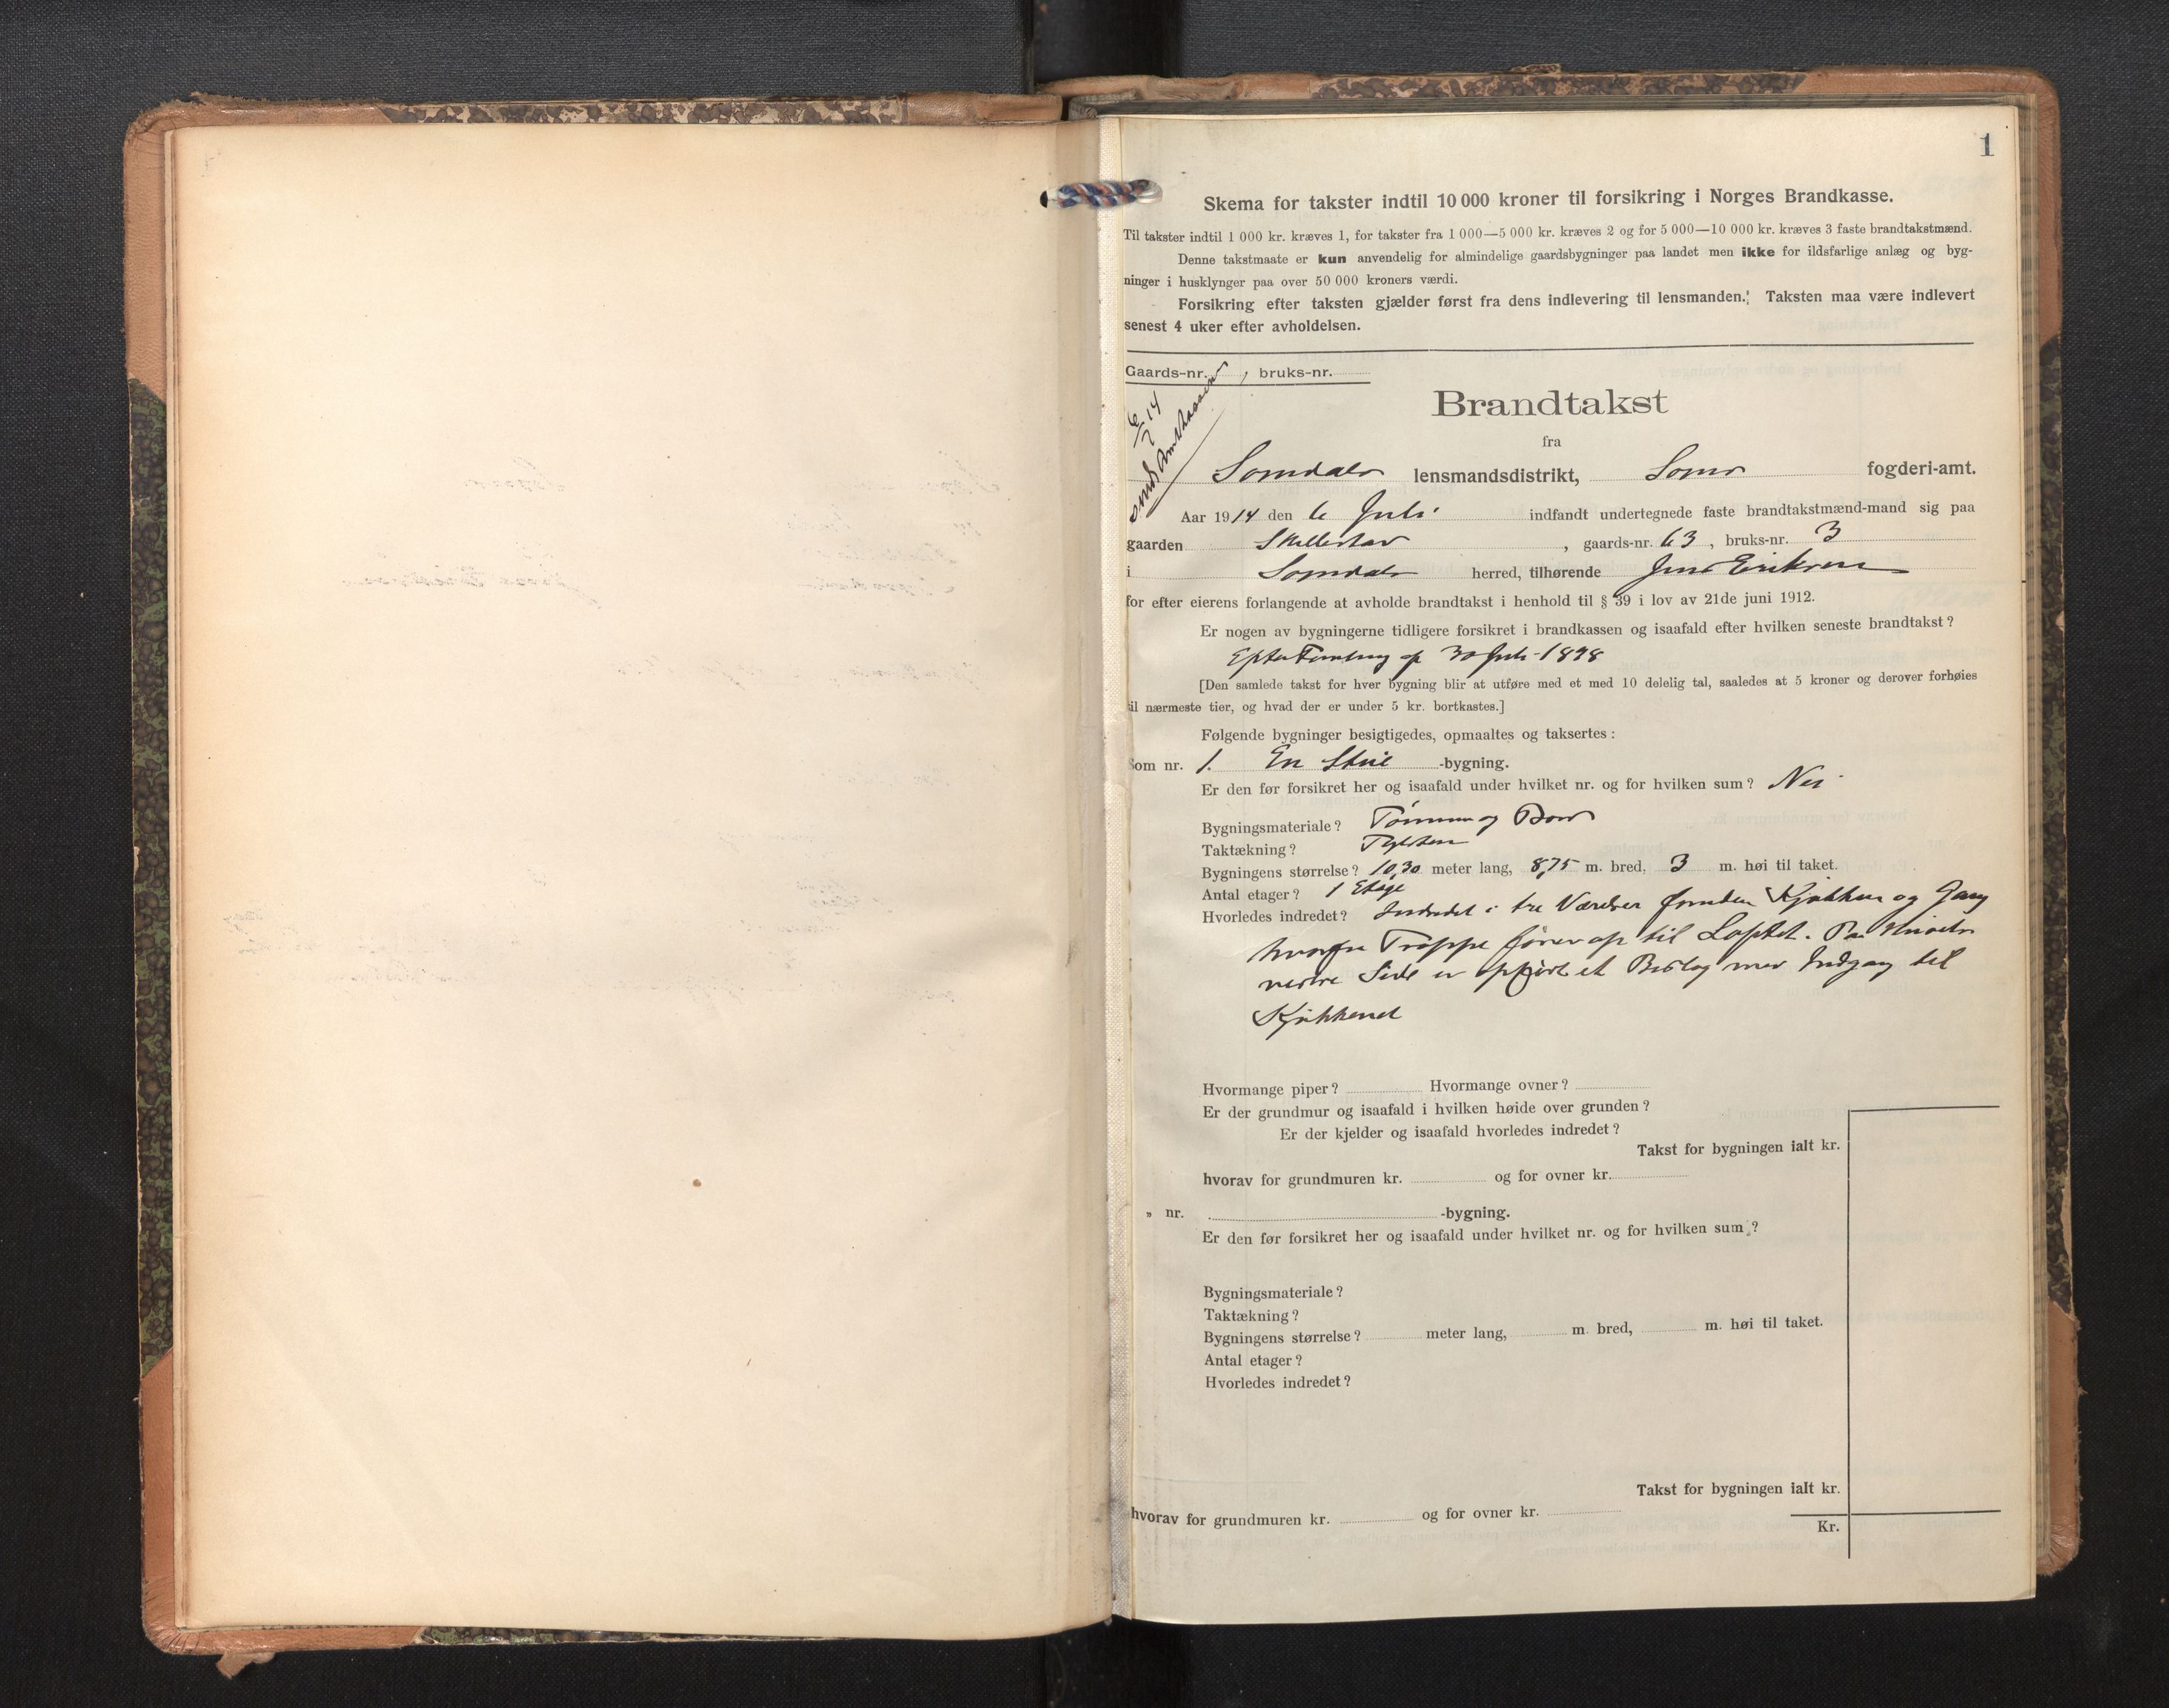 1
Skema for takster indtil 10 000 kroner til forsikring i Norges Brandkasse.
Til takster indtil 1 000 kr. kræves 1, for takster fra 1 000—5 000 kr. kræves 2 og for 5 000—10 000 kr. kræves 3 faste brandtakstmænd.
Denne takstmaate er kun anvendelig for almindelige gaardsbygninger paa landet men ikke for ildsfarlige anlæg og byg-
ninger i husklynger paa over 50 000 kroners værdi.
Forsikring efter taksten gjælder først fra dens indlevering til lensmanden. Taksten maa være indlevert
senest 4 uker efter avholdelsen.
Gaards-nr. , bruks-nr.
6/7 14
Brandtakst
fra
lensmandsdistrikt, fogderi-amt.
Aar 1914 den 6 Juli indfandt undertegnede faste brandtakstmænd-mand sig paa
gaarden , gaards-nr. 63, bruks-nr. 3
i herred, tilhørende Eriksen
for efter eierens forlangende at avholde brandtakst i henhold til § 39 i lov av 21de juni 1912.
Er nogen av bygningerne tidligere forsikret i brandkassen og isaafald efter hvilken seneste brandtakst?
Efter 30 Juli 1898
[Den samlede takst for hver bygning blir at utføre med et med 10 delelig tal, saaledes at 5 kroner og derover forhøies
til nærmeste tier, og hvad der er under 5 kr. bortkastes.]
Følgende bygninger besigtigedes, opmaaltes og taksertes:
Som nr. 1. En Stue -bygning.
Er den før forsikret her og isaafald under hvilket nr. og for hvilken sum? Nei
Bygningsmateriale? Tømmer og Bord
Taktækning?
Bygningens størrelse? 10,30 meter lang, 8,75 m. bred, 3 m. høi til taket.
Antal etager? 1 Etage
Hvorledes indredet? Indredet i tre Værelser foruden Kjøkken og Gang
hvorfra Trappe fører op til Loftet. Paa
Side er opført et Bislag med Indgang til
Kjøkkenet
Hvormange piper? Hvormange ovner?
Er der grundmur og isaafald i hvilken høide over grunden?
Er der kjelder og isaafald hvorledes indredet?
Takst for bygningen ialt kr.
hvorav for grundmuren kr. og for ovner kr.
„ nr. -bygning.
Er den før forsikret her og isaafald under hvilket nr. og for hvilken sum?
Bygningsmateriale?
Taktækning?
Bygningens størrelse? meter lang, m. bred, m. høi til taket.
Antal etager?
Hvorledes indredet?
Takst for bygningen ialt kr.
hvorav for grundmuren kr. og for ovner kr.
Kr.